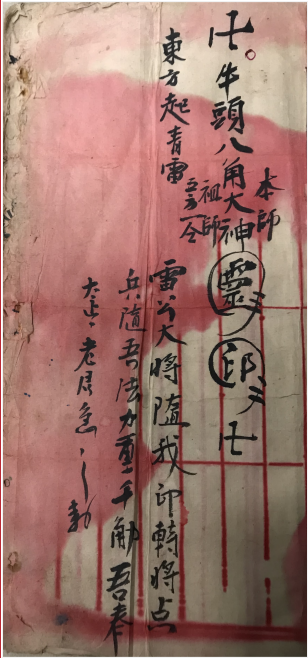 卐牛頭八角大神靈印卐
本師
祖師
東方起青雷
雷公大將隨我印轉將点
兵隨吾法力重千觔吾奉
太上老君急々勅